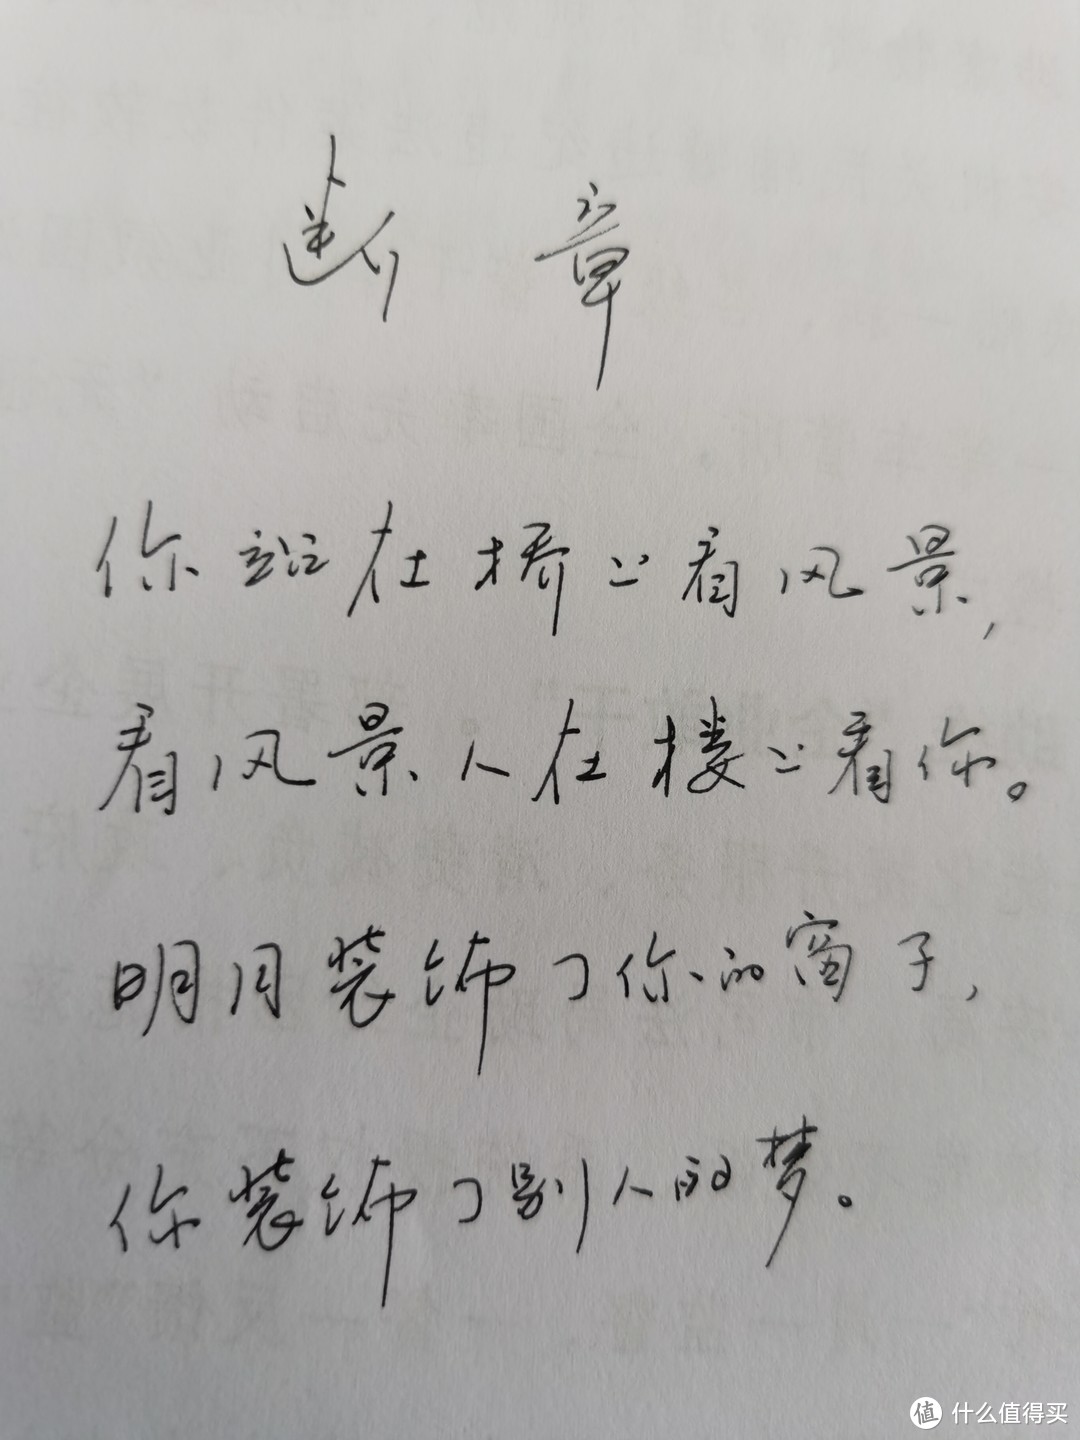 断章
你站在桥上看风景,
看风景人在楼上看你。
明月装饰了你的窗子,
你装饰了别人的梦。
值 什么值得买